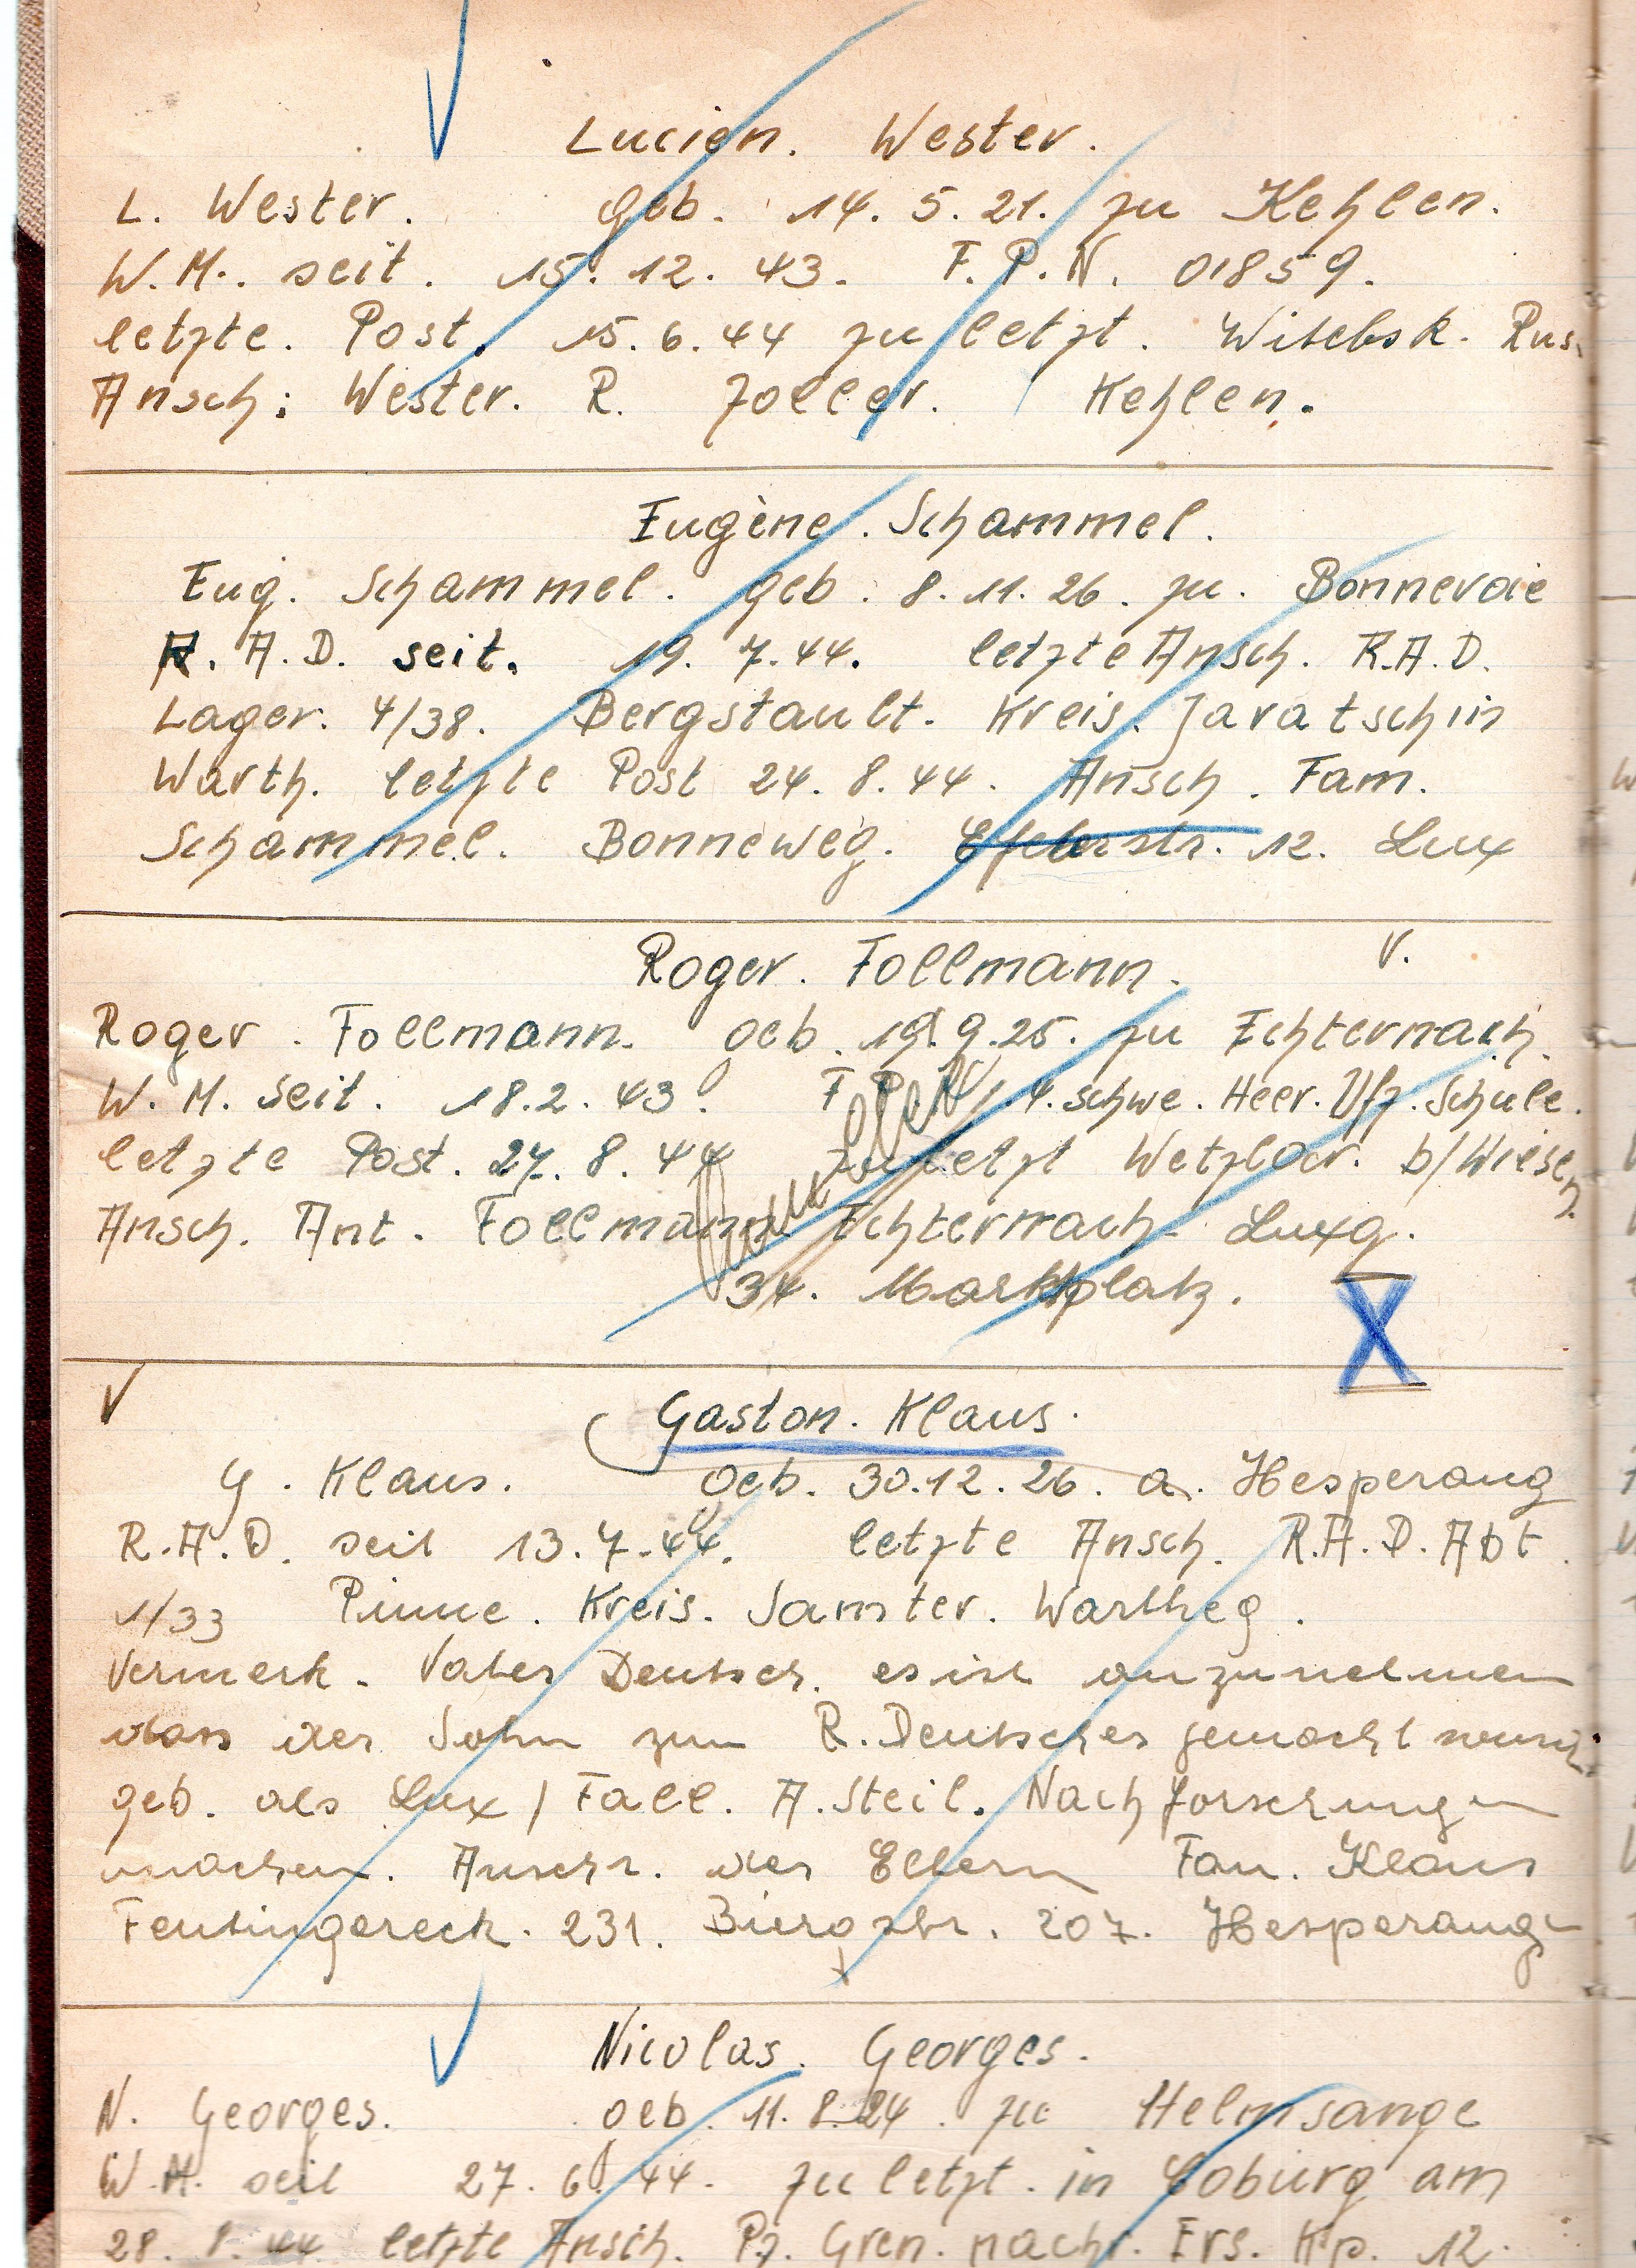 Lucien. Wester.
L. Wester. geb. 14. 5. 21. zu Kehlen.
W.M. seit. 15. 12. 43. F. P. N. 01859.
letzte. Post. 15. 6. 44 zu letzt. Witebsk. Rus.
Ansch: Wester. R. Zoller. Kehlen.
Eugène. Schammel.
Eug. Schammel. geb. 8. 11. 26. zu. Bonnevoie
R. A. D. seit. 19. 7. 44. letzte Ansch. R.A.D.
Lager. 4/38. Bergstault. Kreis. Jaratschin
Warth. letzte Post 24. 8. 44. Ansch. Fam.
Schammel. Bonneweg. 12. Lux
Roger. Follmann. V.
Roger. Follmann. geb. 19. 9. 25. zu Echternach.
W. M. seit. 18. 2. 43. F. P. N. 4. schwe. Heer. Ufz. Schule.
letzte Post. 27. 8. 44 zu letzt Wetzlar. b/Wiesen.
Ansch. Ant. Follmann Echternach Luxg.
34. Marktplatz.
X
V
Gaston. Klaus.
G. Klaus. geb. 30. 12. 26. a. Hesperang
R.A.D. seit 13. 7. 44. letzte Ansch. R.A.D. Abt.
1/33 Pinne. Kreis. Samter. Wartheg.
Vermerk. Vater Deutscher. es ist anzunehmen
dass der Sohn zum R. Deutscher gemacht wurde.
geb. als Lux / Fall. A. Steil. Nachforschungen
machen. Anschr. der Eltern Fam. Klaus
231. 207. Hesperang
Nicolas. Georges.
N. Georges. geb. 11. 8. 24. zu Helmsange
W.M. seit 27. 6. 44. zu letzt. in Coburg am
28. 8. 44 letzte Ansch. Pz. Gren. nachr. Ers. Kp. 12.